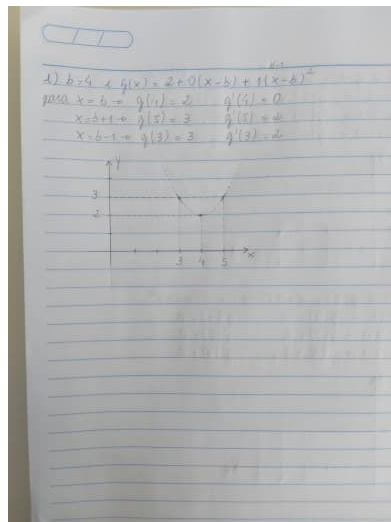 b=4 e g(x) = 2+0(x-b) + 1(x-b)²
para x=b → g(4)=2 g'(4)=0
x=b+1 → g(5)=3 g'(5)=2
x=b-1 → g(3)=3 g'(3)=2
y
3
2
3 4 5 x